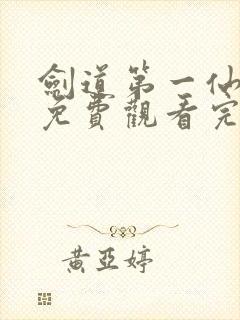 劍道第一仙
免費觀看完
黃亞婷